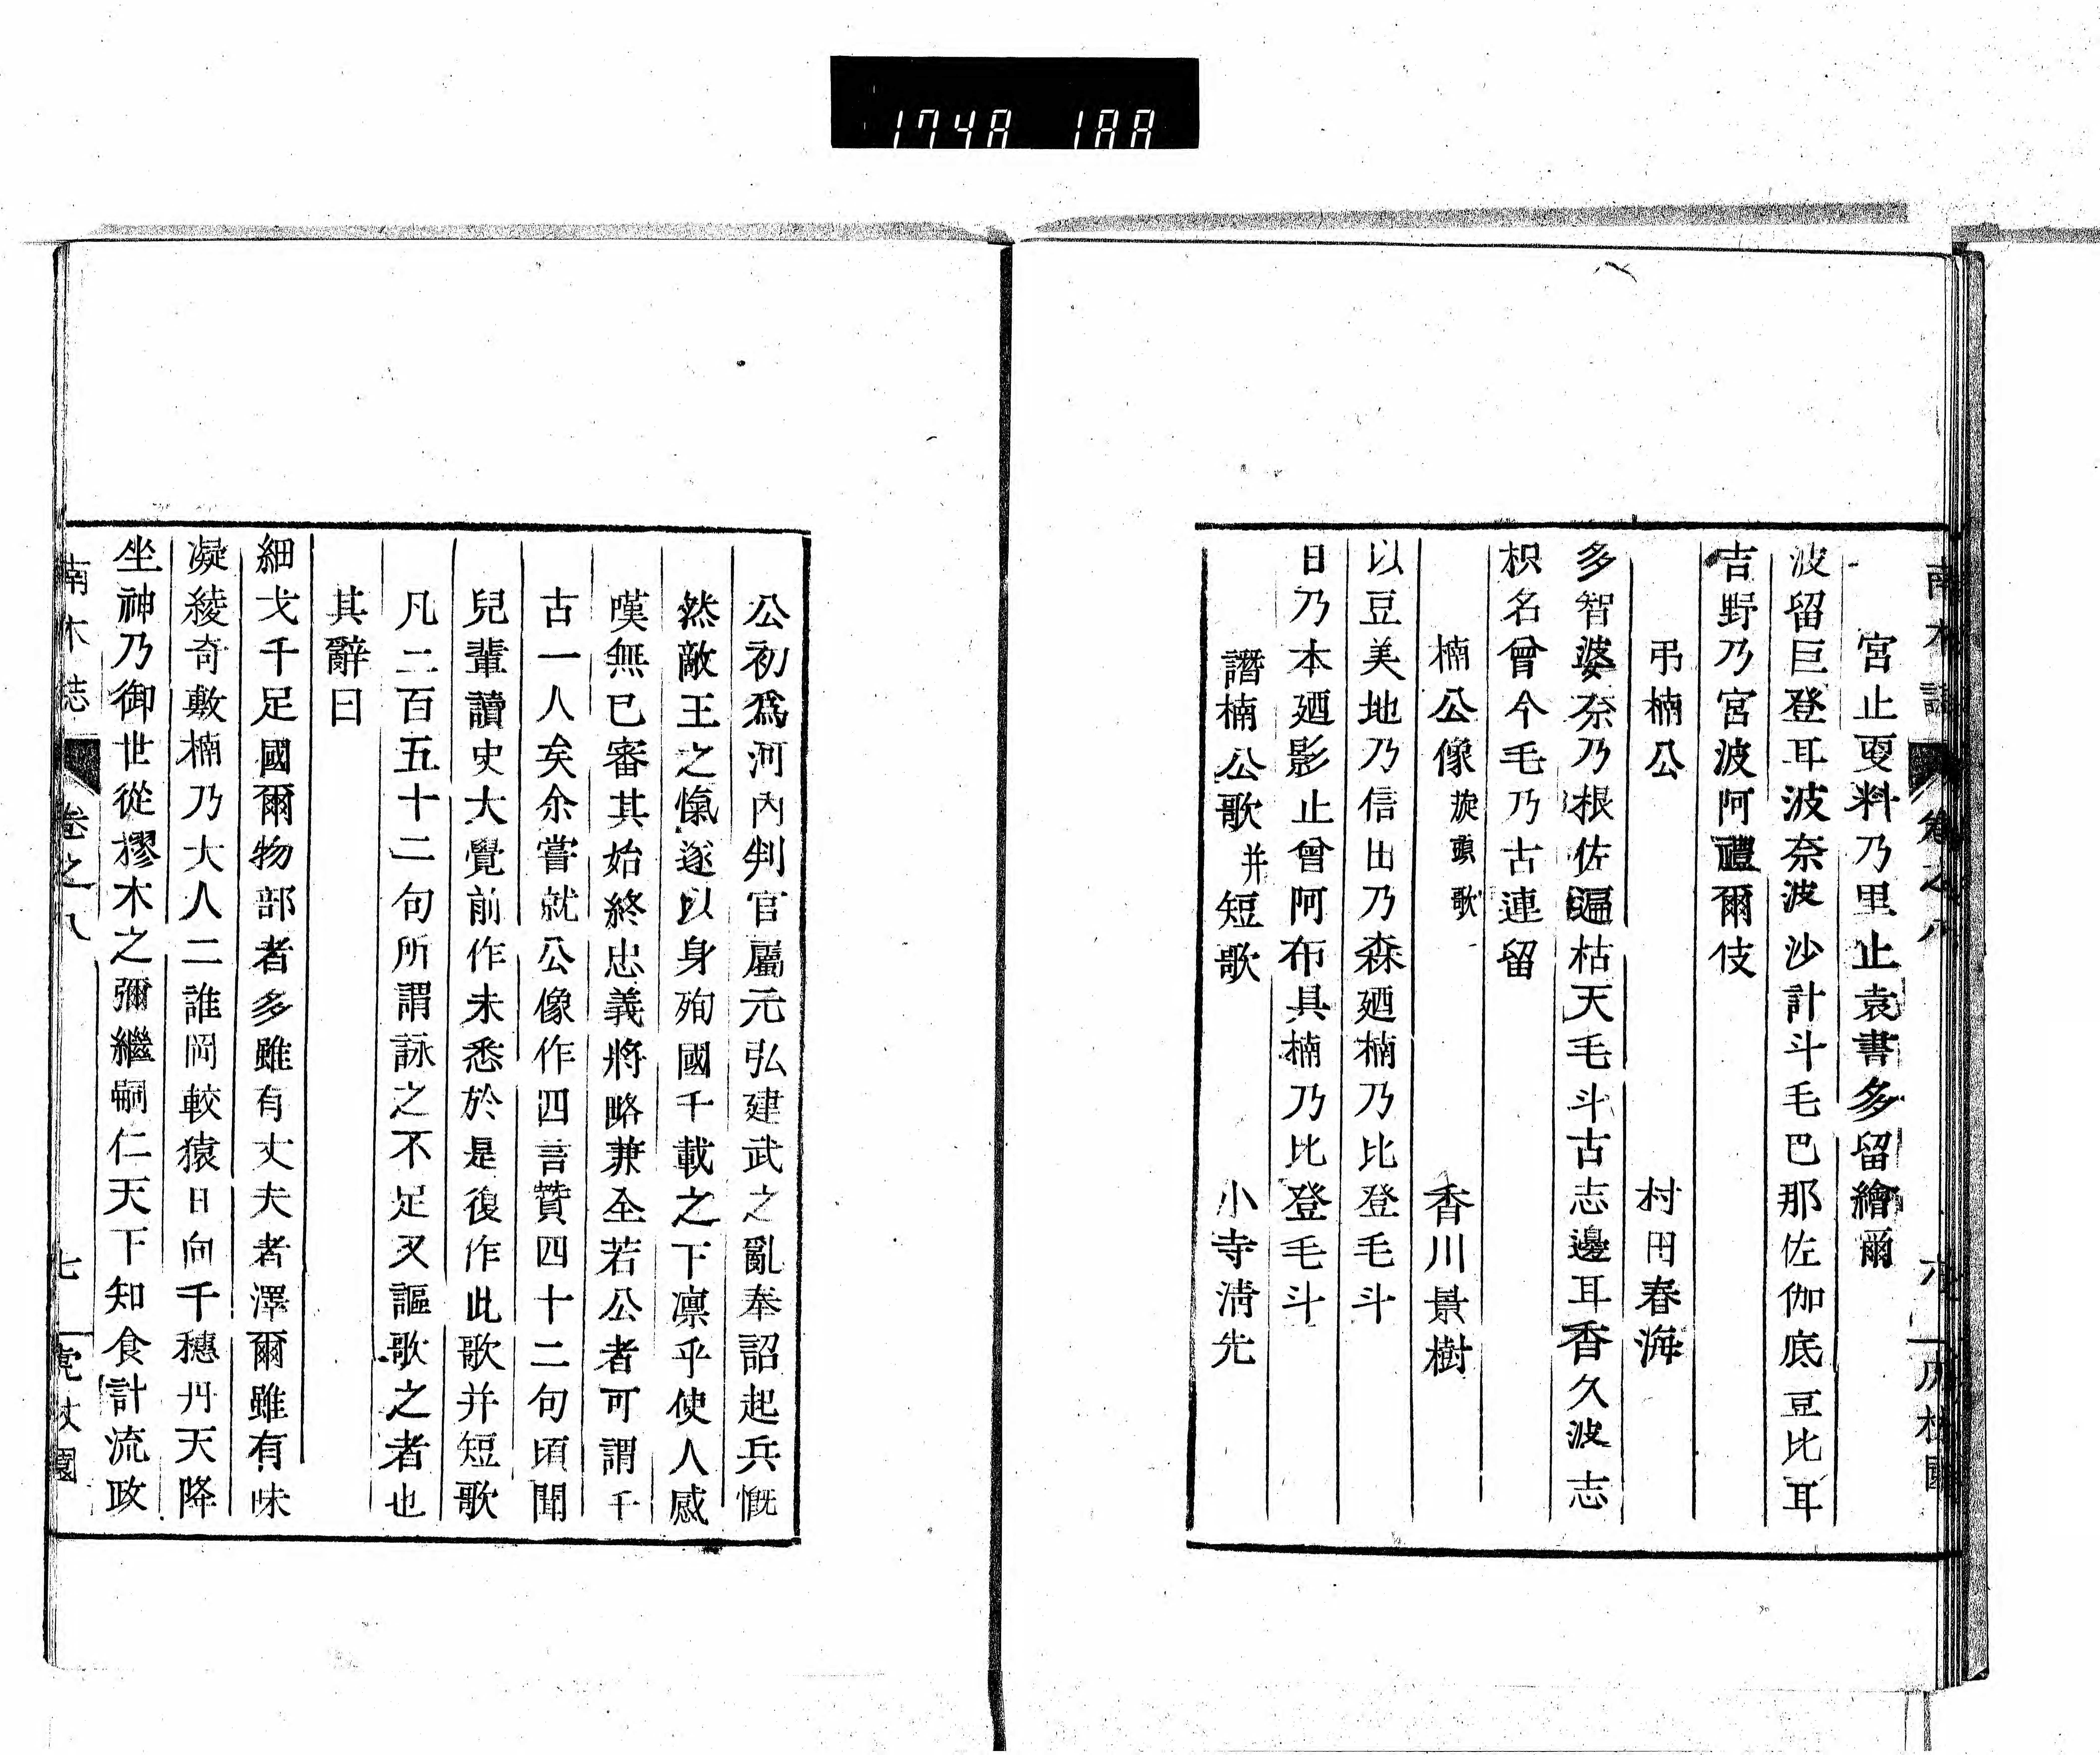 1748 188
南木誌 卷之八 六
宮止更料乃里止袁書多留繪爾
波留巨登耳波奈波沙計斗毛巴那佐伽底豆比耳
吉野乃宮波阿禮爾伎
弔楠公 村田春海
多智婆奈乃根佐遍枯天毛斗古志邊耳香久波志
枳名曾今毛乃古連留
楠公像 旋頭歌 香川景樹
以豆美地乃信田乃森廼楠乃比登毛斗
日乃本廼影止曾阿布具楠乃比登毛斗
譛楠公歌并短歌 小寺淸先
公初爲河內判官屬元弘建武之亂奉詔起兵慨
然敵王之愾遂以身殉國千載之下凛乎使人感
嘆無已審其始終忠義將略兼全若公者可謂千
古一人矣余嘗就公像作四言贊四十二句頃聞
兒輩讀史大覺前作未悉於是復作此歌并短歌
凡二百五十二句所謂詠之不足又謳歌之者也
其辭曰
細戈千足國爾物部者多雖有丈夫者澤爾雖有味
凝綾奇敷楠乃大人二誰岡較猿日向千穗丹天降
坐神乃御世從樛木之彌繼嗣仁天下知食計流政
南木誌 卷之八 七